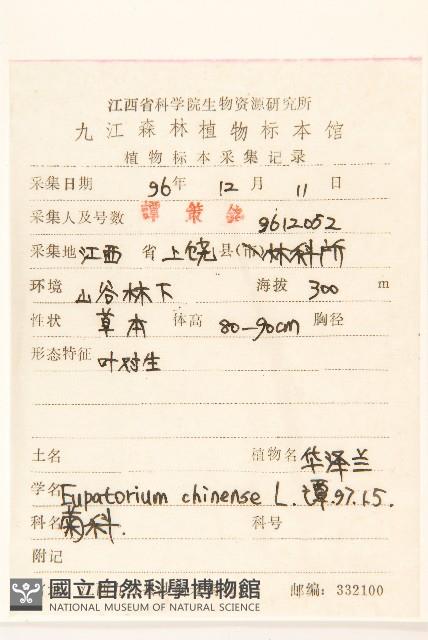 江西省科学院生物资源研究所
九江森林植物标本馆
植物标本采集记录
采集日期 96年 12月 11日
采集人及号数 譚策銘 9612052
采集地 江西 省 上饶 县(市) 林科所
环境 山谷林下 海拔 300 m
性状 草本 体高 80-90cm 胸径
形态特征 叶对生
土名 植物名 华泽兰
学名 Eupatorium chinense L. 譚.97.1.5.
科名 菊科. 科号
附记
國立自然科學博物館 邮编: 332100
NATIONAL MUSEUM OF NATURAL SCIENCE